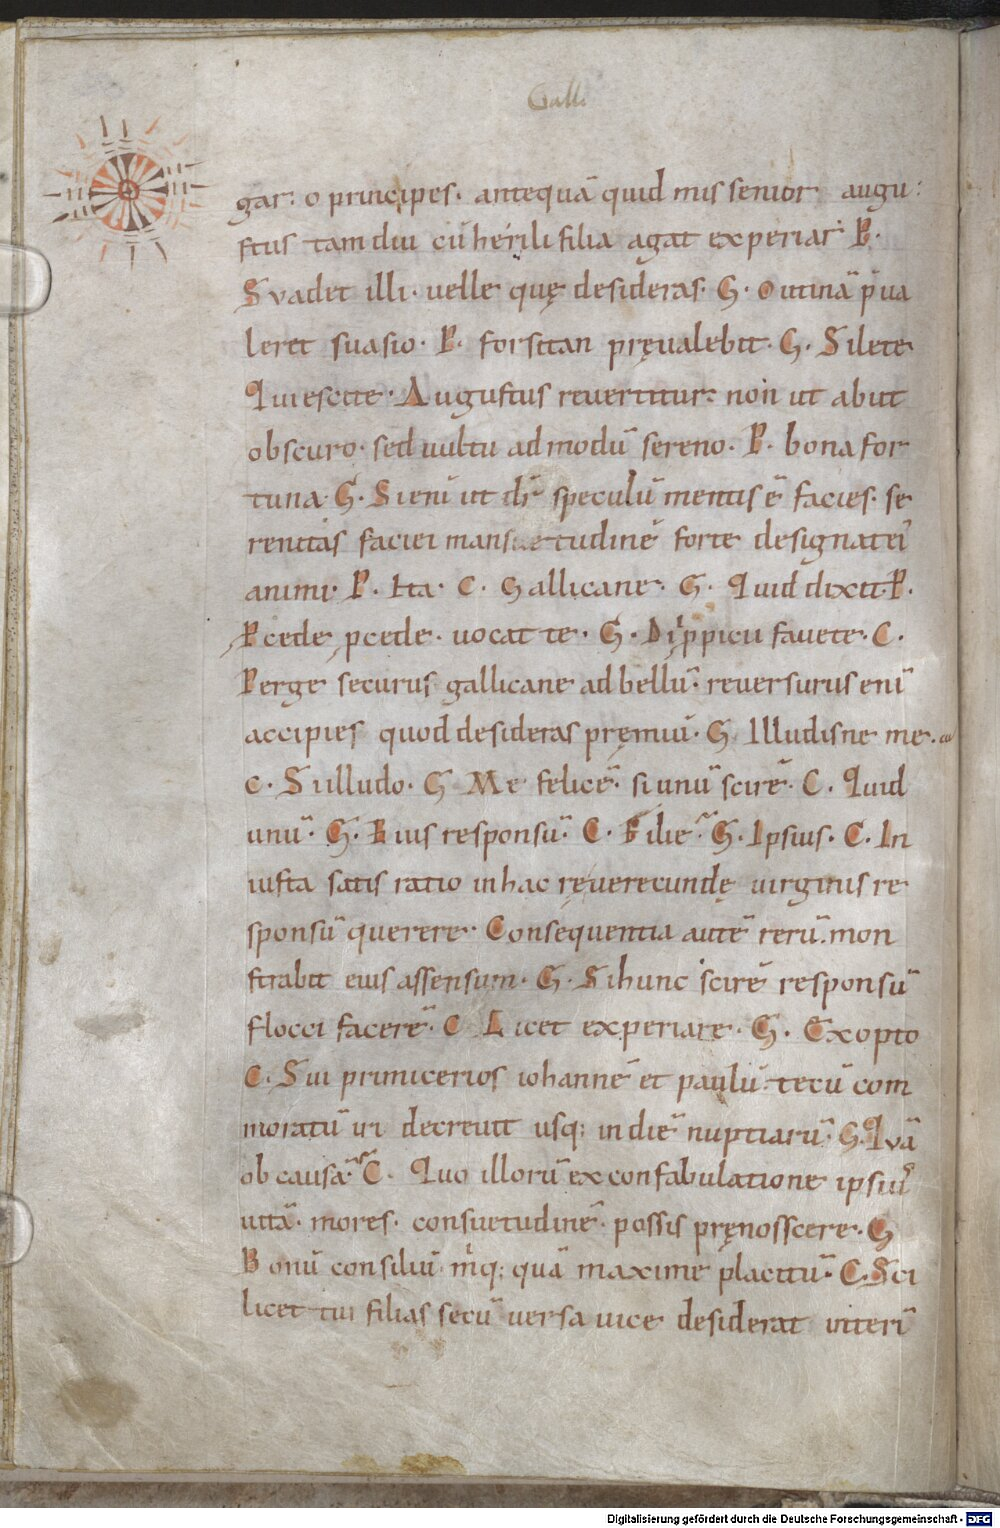 Galli
gar. o principes. antequā quid mis senior augu
ſtus tam diu cū herili filia agat experiar. P.
Suadet illi. uelle quę desideras. G. O utinā p̄ua
leret suasio. P. forsitan pręualebit. G. Silete
Quiescite. Auguſtus reuertitur. non ut abiit
obscuro. sed uultu admodū sereno. P. bona for
tuna. G. Si enī ut dr̄ speculū mentis ē facies. se
renitas faciei mansuetudinē forte designat ei
animi. P. Ita. C. Gallicane. G. Quid dixit. P.
Pcede pcede. uocat te. G. Di ppicii fauete. C.
Perge securus gallicane ad bellū. reuersurus enī
accipies quod desideras pręmiū. G. Illudisne me.
C. Si illudo. G. Me felicē. si unū scirē. C. Quid
unū. G. Eius responsū. C. Filie. G. Ipsius. C. In
iuſta satis ratio in hac re uerecundę uirginis re
sponsū querere. Consequentia autē rerū. mon
ſtrabit eius assensum. G. Si hunc scirē responsū
flocci facerē. C. Licet experiare. G. Exopto
C. Sui primicerios iohannē et paulū. tecū com
moratū iri decreuit usq; in diē nuptiarū. G. Quā
ob causā. C. Quo illorū ex confabulatione ipsius
uitā. mores. consuetudinē. possis pręnosscere. G.
Bonū consiliū. mq; quā maxime placitū. C. Sci
licet tui filias secū uersa uice desiderat interī
Digitalisierung gefördert durch die Deutsche Forschungsgemeinschaft - DFG